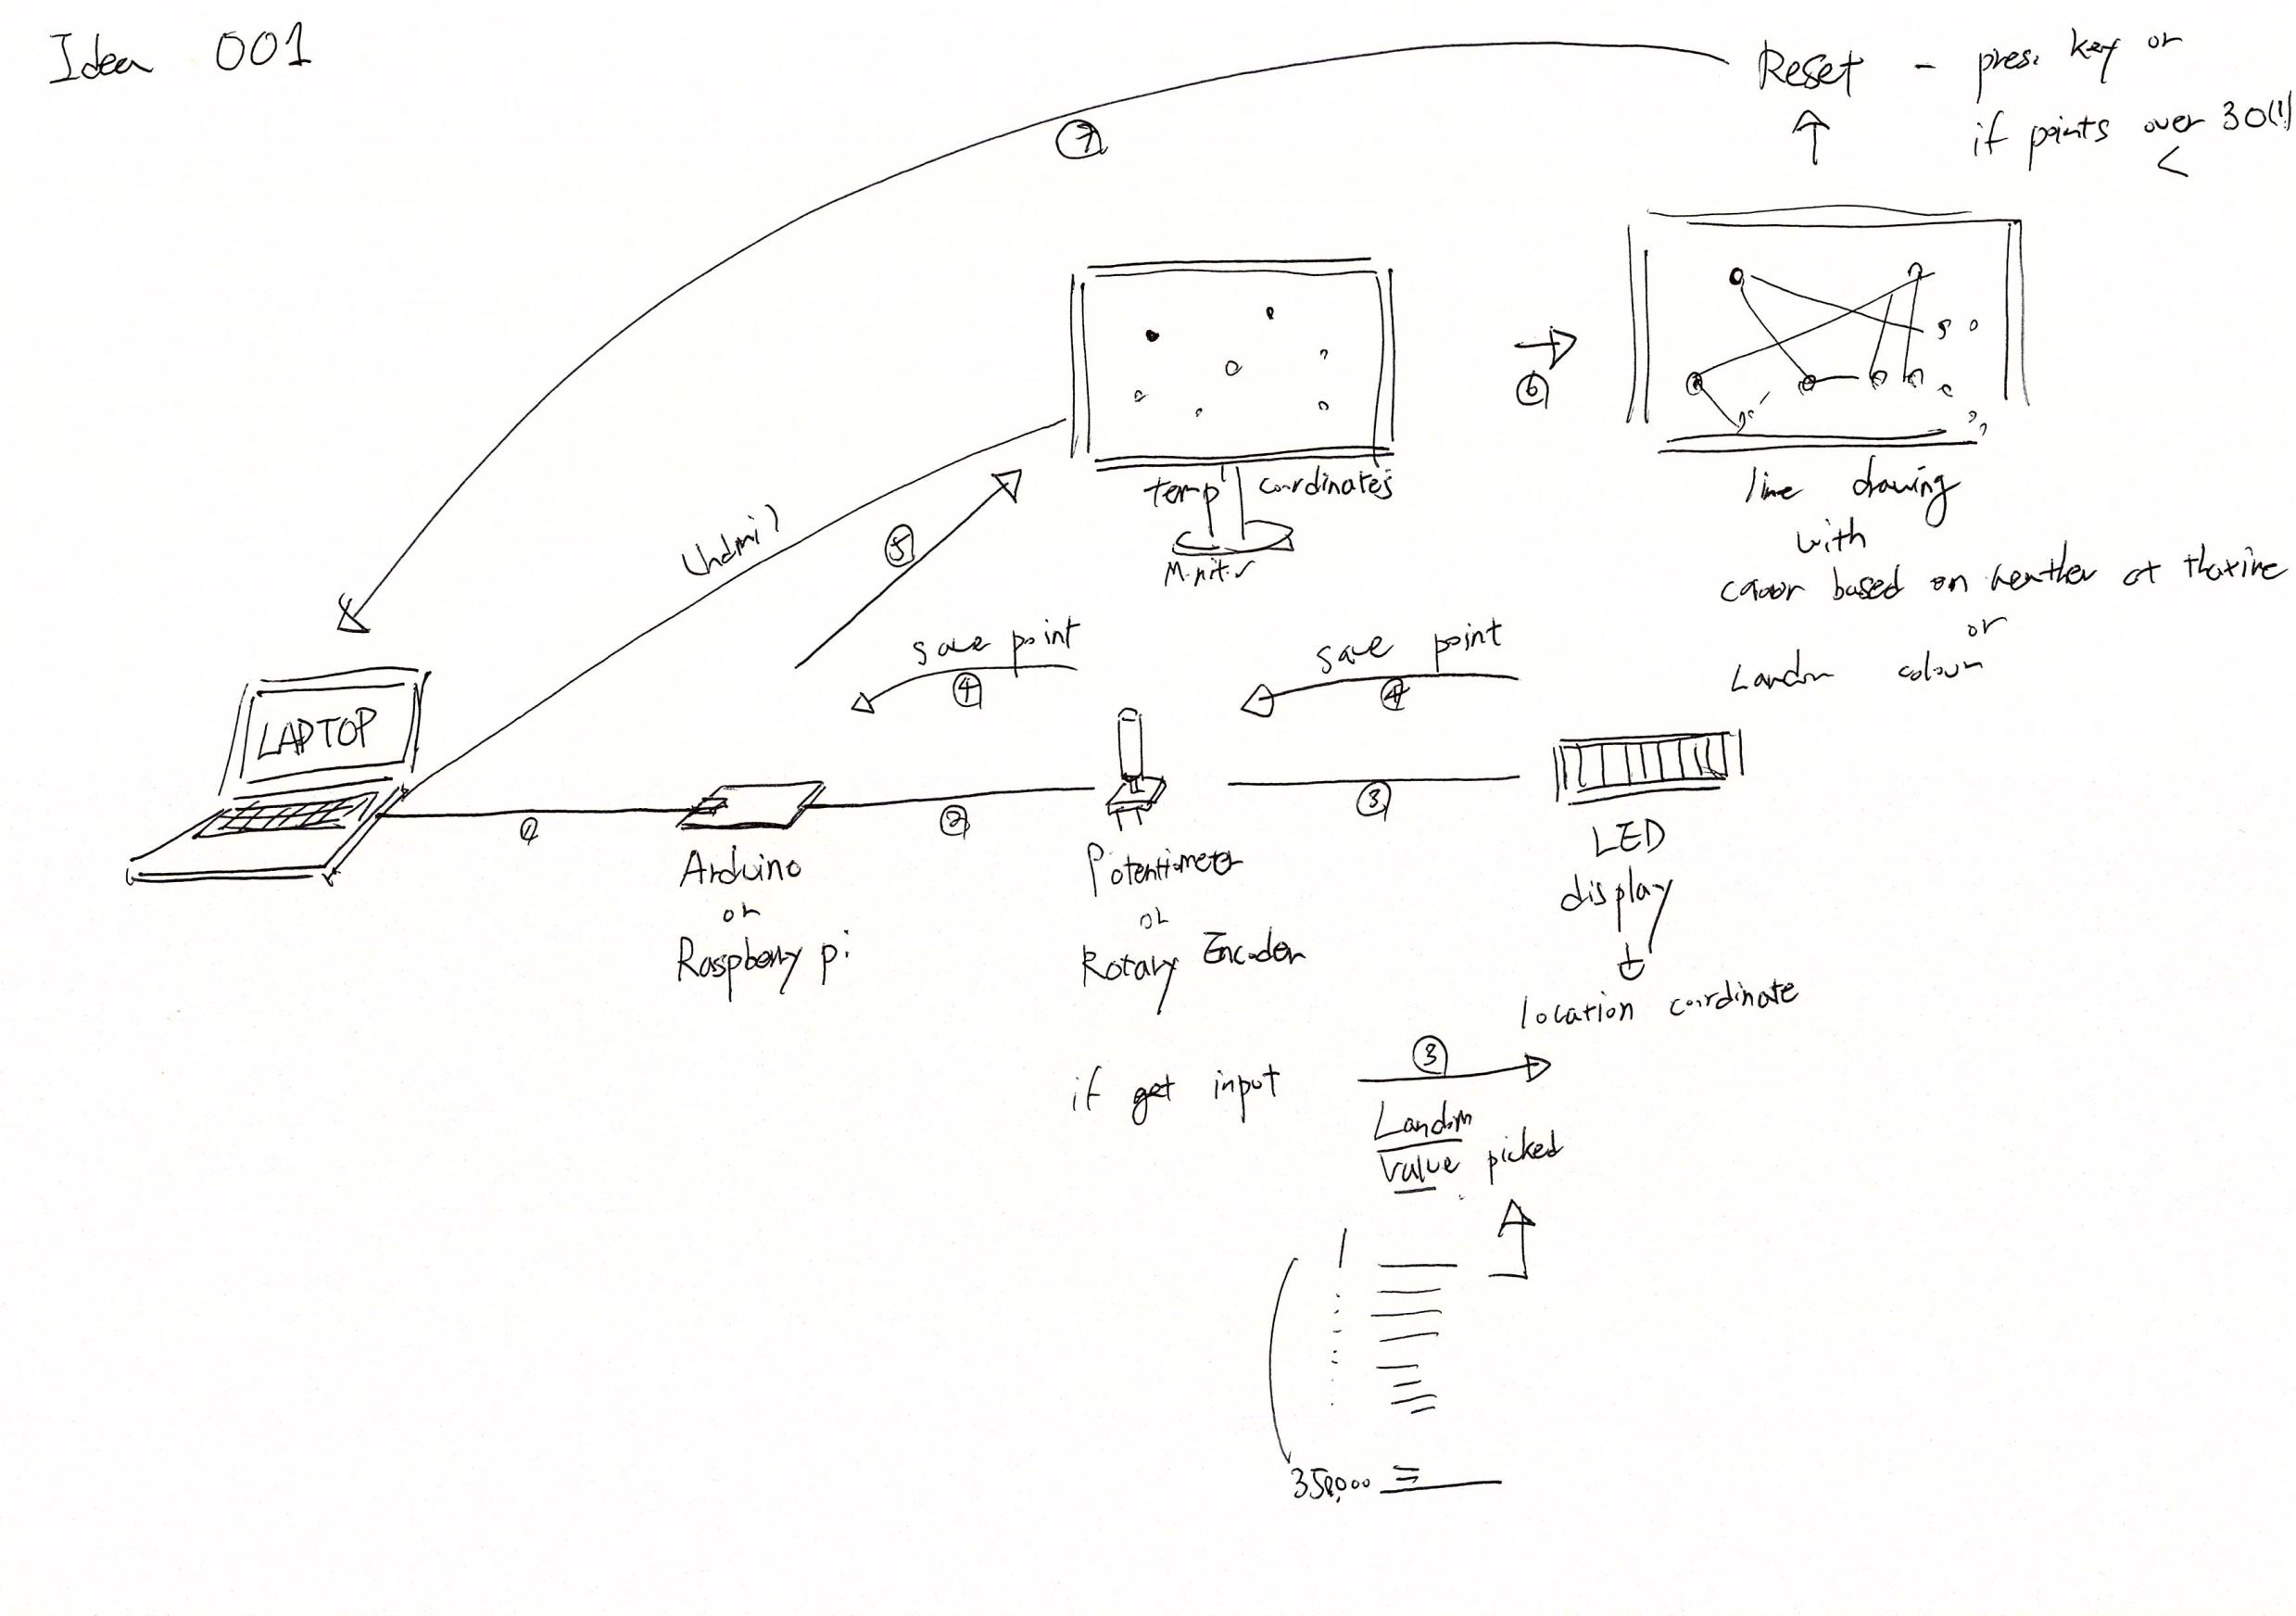 Idea 001
Reset - press key or
if points over 30(!)
<
⑦
temp' coordinates
Monitor
⑥
line drawing
with
colour based on weather at
or
Landom colour
(hdmi)
⑤
save point
④
save point
④
LAPTOP
①
②
③
Arduino
or
Raspberry pi
Potentiometer
or
Rotary Encoder
LED
display
location coordinate
if get input
③
Landom
value picked
1
350,000